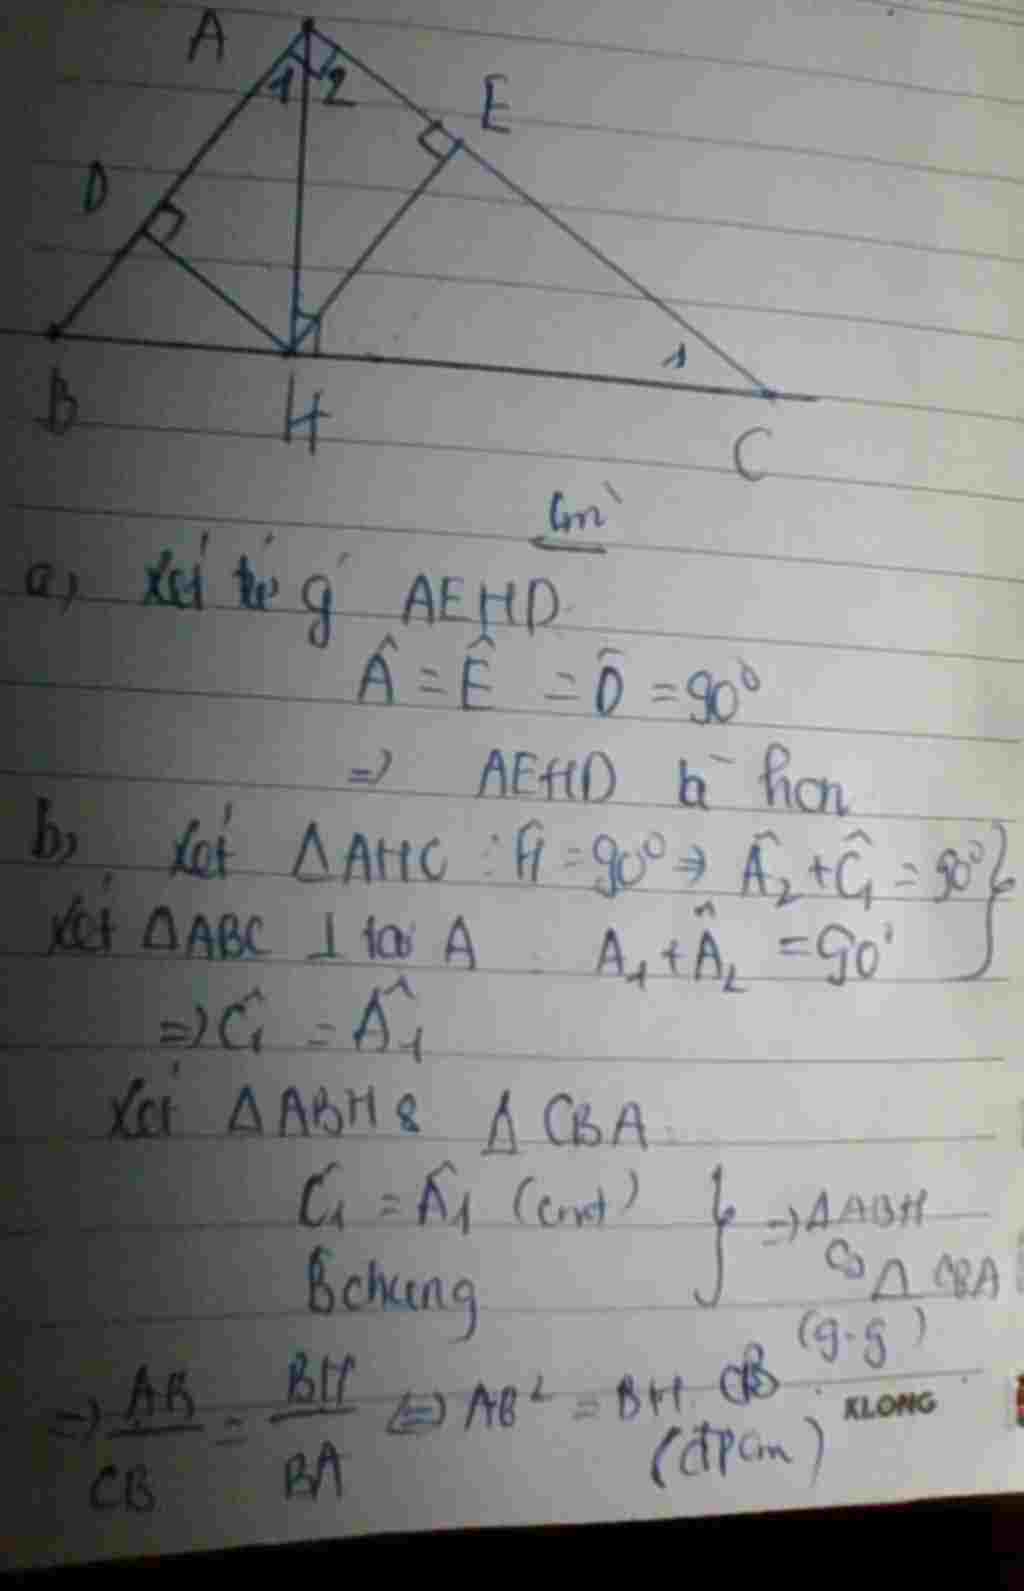 A
1 2
E
D
B
H
1
C
Giải
a) Xét tứ g AEHD
Â = Ê = D̂ = 90⁰
=> AEHD là hcn
b) Xét ΔAHC : Ĥ = 90⁰ => Â₂ + Ĉ₁ = 90⁰
Xét ΔABC ⊥ tại A : A₁ + Â₂ = 90⁰
=> Ĉ₁ = Â₁
Xét ΔABH & ΔCBA
Ĉ₁ = Â₁ (cmt) } => ΔABH
B̂ chung ∽ Δ CBA
(g-g)
=> AB/CB = BH/BA <=> AB² = BH . CB
(đpcm)
KLONG